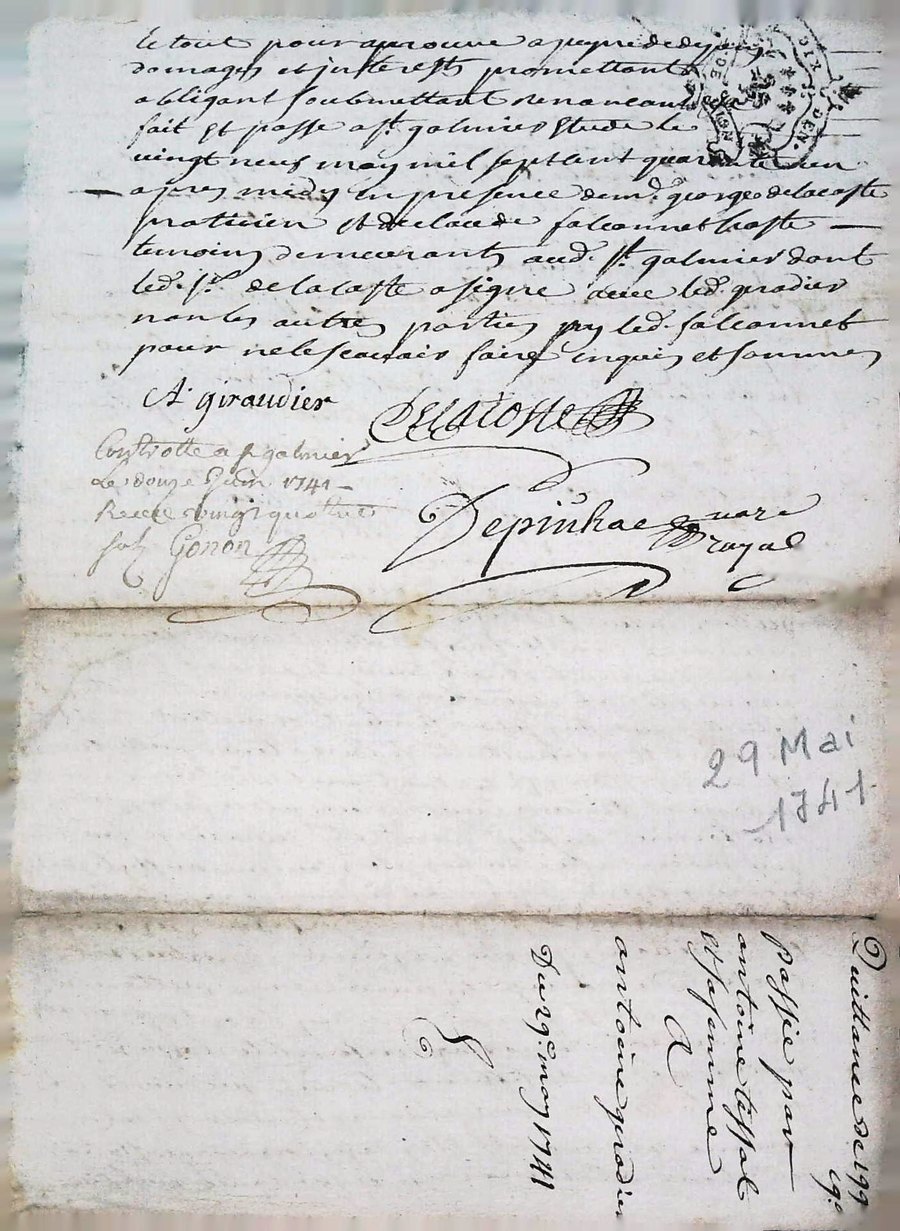 le tout pour aprouve a peyne de depens
domages et jnterests promettant
obligant soubmettant renoncant
fait et passe a st. galmier Etude le
vingt neuf may mil sept cent quarante un
apres midy en presence de mr. george delacoste
praticien et de claude falconnet
temoins demeurants aud. st. galmier dont
led. sr. delacoste a signe avec led. gradier
non les autres parties ny led. falconnet
pour ne le scavoir faire enquis et sommes
A. giraudier
Delacoste
Controlle a st galmier
Le douze Juin 1741
Receu vingt quattre
sols Gonon
Depinhac nore
royal
29 Mai
1741
Quittance de 199
passée par
antoine tissot
et sa femme
A
antoine gradier
Du 29e. may 1741